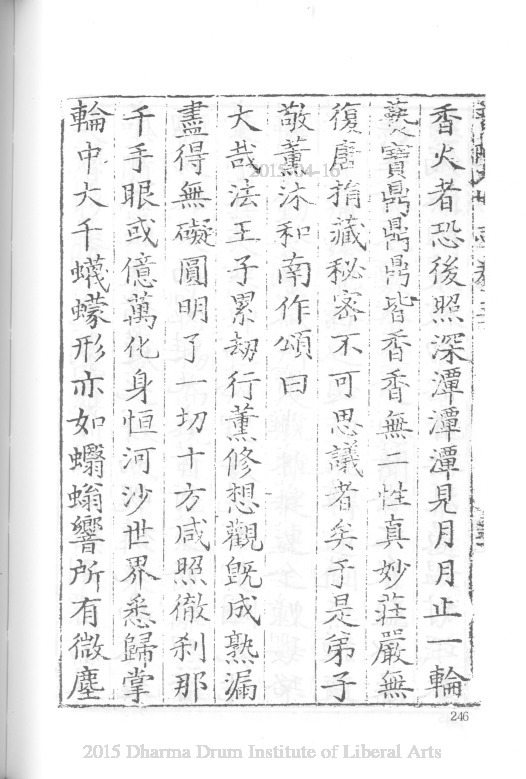 香火者恐後照深潭潭潭見月月止一輪
爇寶鼎鼎鼎皆香香無二性真妙莊嚴無
復唐捐藏秘密不可思議者矣于是弟子
敬薰沐和南作頌曰
大哉法王子累劫行薰修想觀既成熟漏
盡得無礙圓明了一切十方咸照徹剎那
千手眼或億萬化身恒河沙世界悉歸掌
輪中大千蠛蠓形亦如蠮螉響所有微塵
2015-04-16
246
2015 Dharma Drum Institute of Liberal Arts